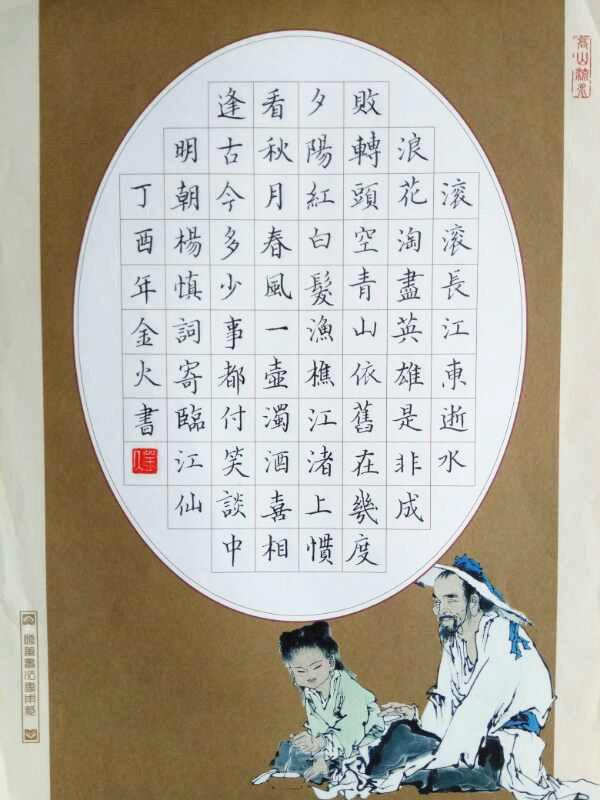 滚滚長江東逝水
浪花淘盡英雄是非成
敗轉頭空青山依舊在幾度
夕陽紅白髮漁樵江渚上慣
看秋月春風一壺濁酒喜相
逢古今多少事都付笑談中
明朝楊慎詞寄臨江仙
丁酉年金火書